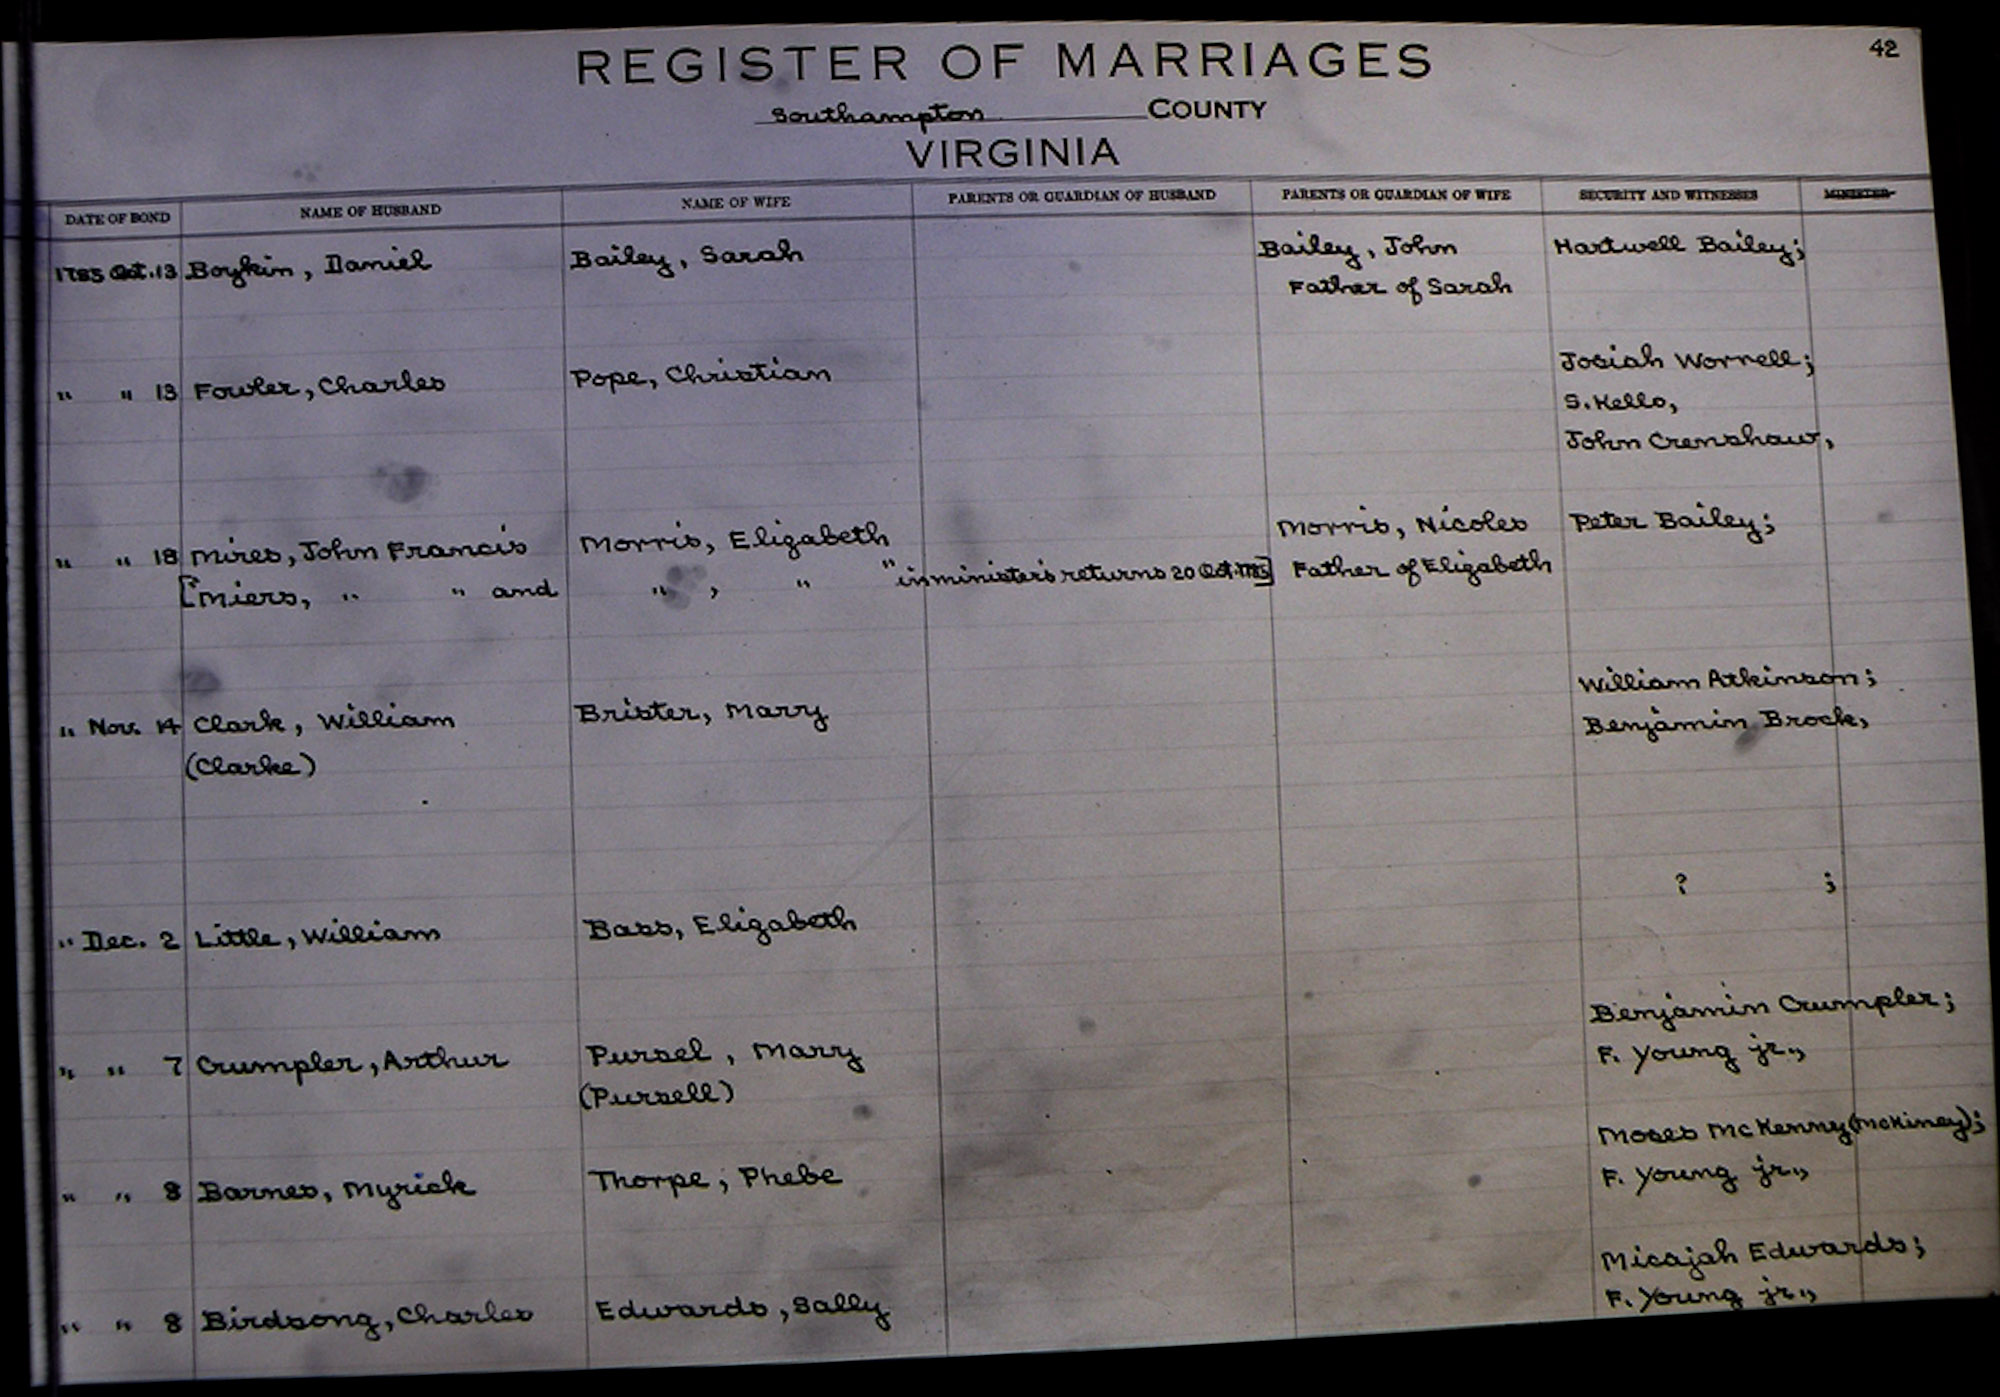 42
REGISTER OF MARRIAGES
Southampton COUNTY
VIRGINIA
DATE OF BOND NAME OF HUSBAND NAME OF WIFE PARENTS OR GUARDIAN OF HUSBAND PARENTS OR GUARDIAN OF WIFE SECURITY AND WITNESSES MINISTER
1785 Oct. 13 Boykin, Daniel Bailey, Sarah Bailey, John Hartwell Bailey;
Father of Sarah
" " 13 Fowler, Charles Pope, Christian Josiah Worrell;
S. Kello,
John Crenshaw,
" " 18 Mires, John Francis Morris, Elizabeth Morris, Nicoles Peter Bailey;
["Miers, " " and " , " " in minister's returns 20 Oct. 1785] Father of Elizabeth
William Atkinson;
" Nov. 14 Clark, William Brister, Mary Benjamin Brock,
(Clarke)
? ;
" Dec. 2 Little, William Bass, Elizabeth
Benjamin Crumpler;
" " 7 Crumpler, Arthur Pursel, Mary F. Young jr.,
(Pursell)
Moses McKenny (McKiney);
" " 8 Barnes, Myrick Thorpe, Phebe F. Young jr.,
Micajah Edwards;
" " 8 Birdsong, Charles Edwards, Sally F. Young jr.,